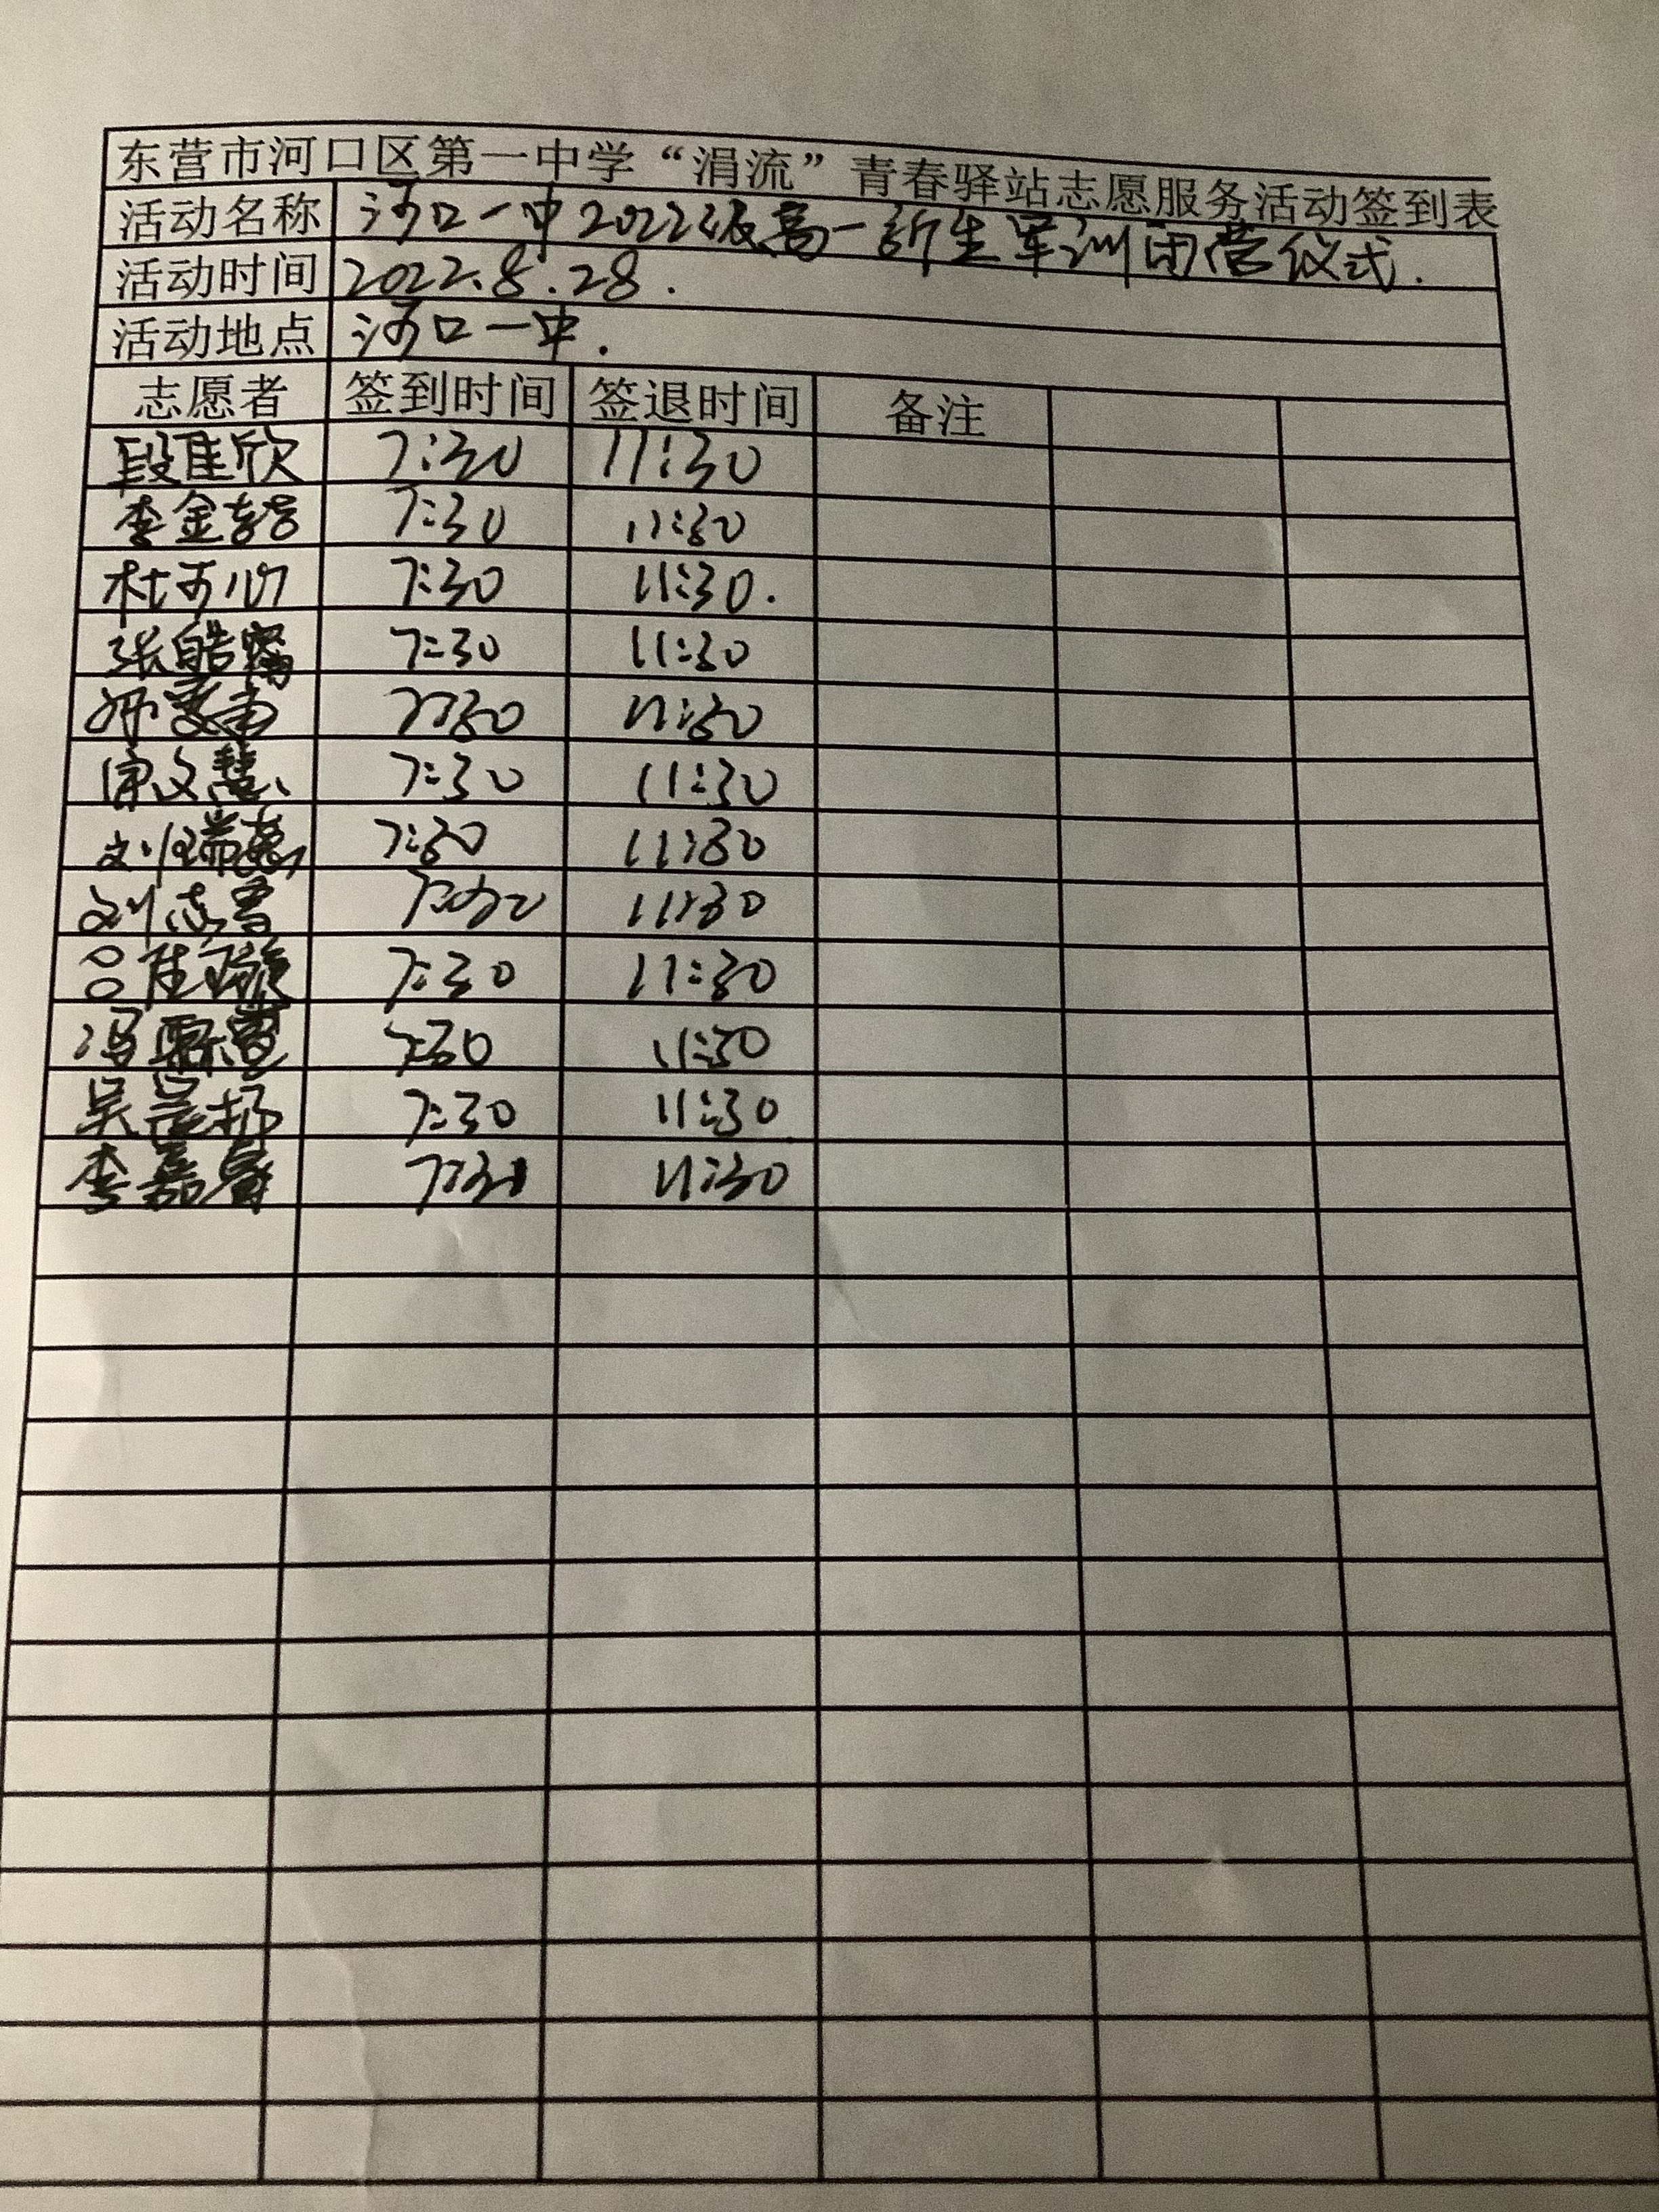 东营市河口区第一中学“涓流”青春驿站志愿服务活动签到表
活动名称 河口一中2022级高一新生军训闭营仪式.
活动时间 2022.8.28.
活动地点 河口一中.
志愿者 签到时间 签退时间 备注
段佳欣 7:30 11:30
李金 7:30 11:30
杜可心 7:30 11:30.
张皓 7:30 11:30
7:30 11:30
文慧 7:30 11:30
刘瑞 7:30 11:30
刘志雪 7:30 11:30
吕佳璇 7:30 11:30
冯 7:30 11:30
吴 7:30 11:30
李嘉睿 7:30 11:30